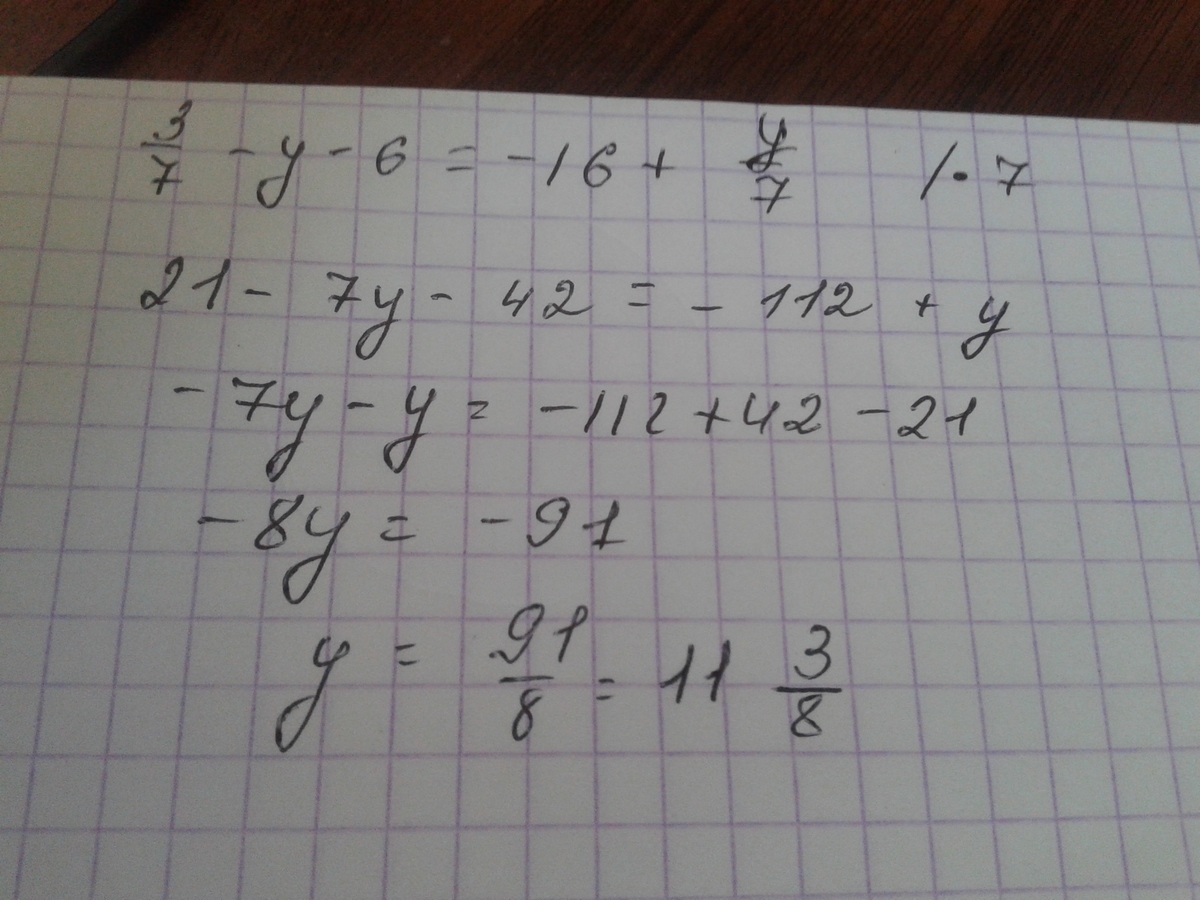 3/7 - y - 6 = -16 + y/7 /· 7
21 - 7y - 42 = - 112 + y
- 7y - y = -112 + 42 - 21
- 8y = - 91
y = 91/8 = 11 3/8